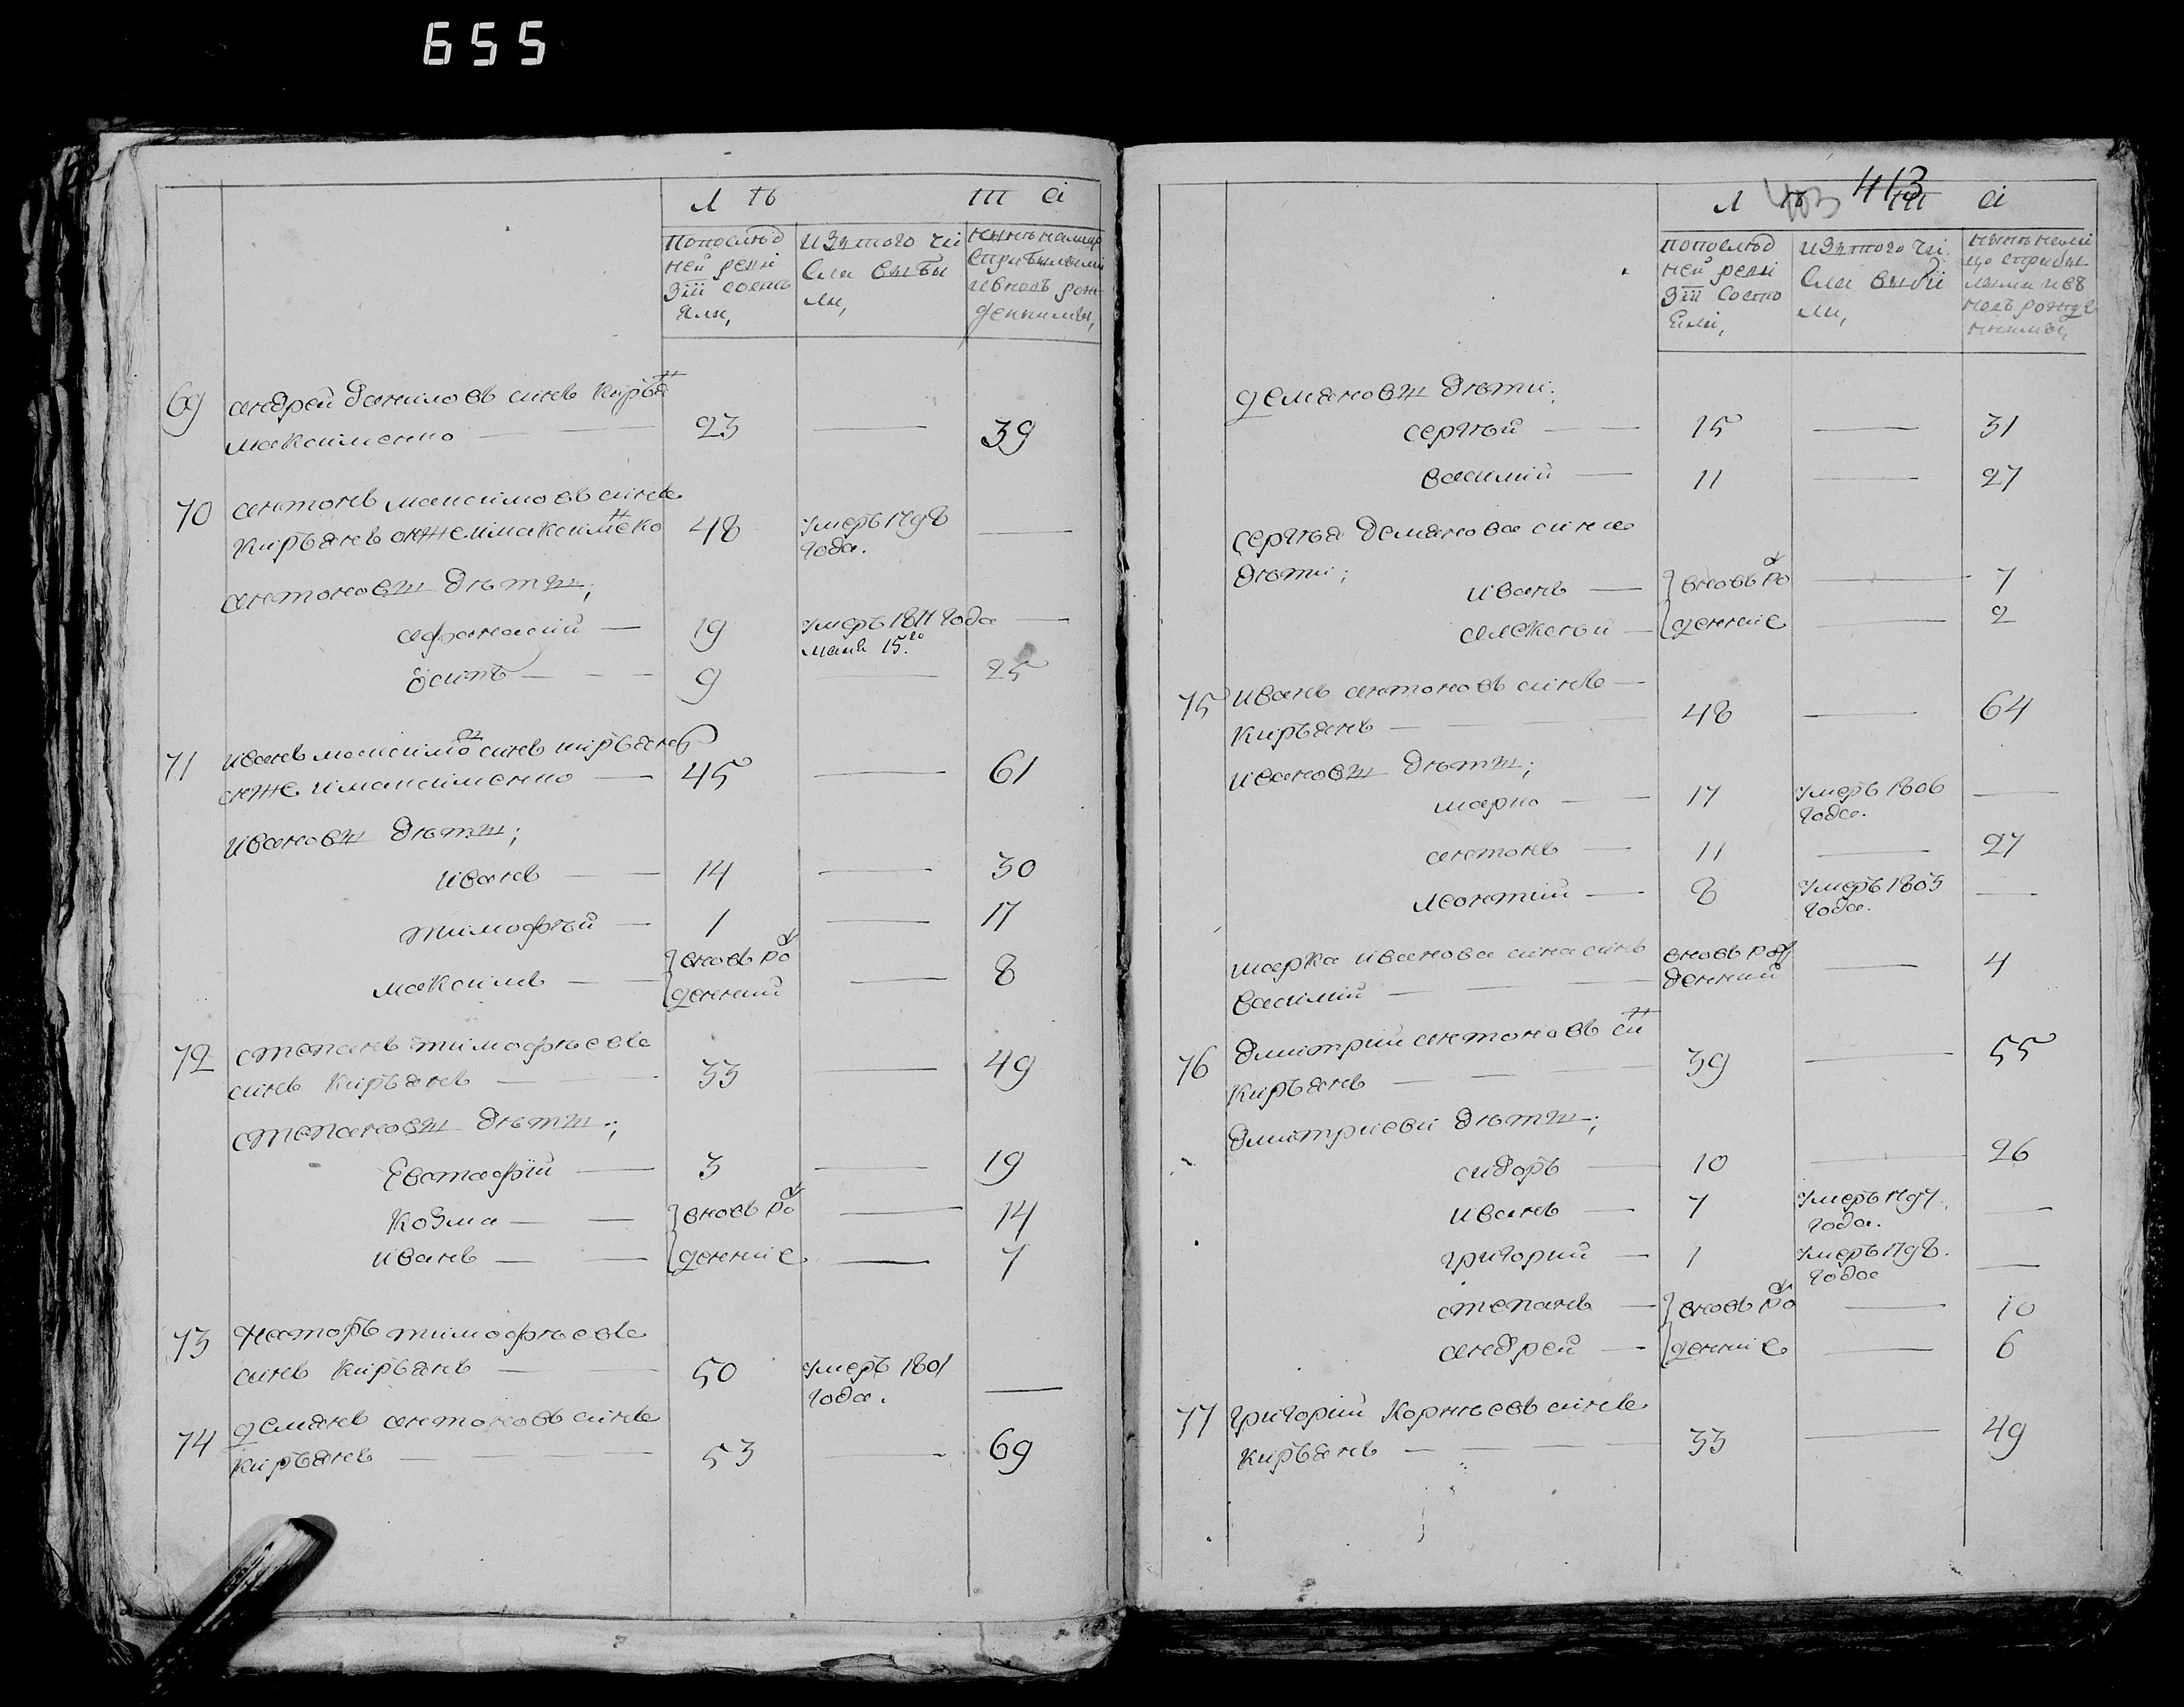 655
Л Ѣ Т А
попослѣд изътого чи ныне налицо
ней реви сла выбы сприбылыми
зіи состо ли, ивновь рож
яли, денными,
69 андрей даниловъ синъ Киръян
максименко — 23 — 39
70 антонъ максимовъ синъ
Киръянъ онже имаксименко 48 умеръ 1798 года. —
антоновы дѣты;
афанасий — 19 умеръ 1811 года маия 15.го —
осипъ — 9 — 25
71 иванъ максимовъ синъ киръянъ
онже имаксименко — 45 — 61
ивановы дѣты;
иванъ — 14 — 30
тимофѣй — 1 — 17
максимъ — вновь рожденний — 8
72 степанъ тимофѣевъ
синъ Киръянъ — 33 — 49
степановы дѣты;
Евстафїй — 3 — 19
Козма — вновь рож — 14
иванъ — дениіе — 7
73 Несторъ тимофѣевъ
синъ Киръянъ — 50 умеръ 1801 года. —
74 демянъ антоновъ синъ
киръянъ — 53 — 69
413
Л Ѣ Т А
попослѣд изътого чи ныне нали
ней реви сла выбы цо сприбы
зіи состо ли, лыми ивъ
яли, новь рожде
нными,
демяновы дѣти;
сергѣй — 15 — 31
василий — 11 — 27
сергѣя демянова сина
дѣти;
иванъ — вновь рож — 7
алексѣй — дениіе — 2
75 иванъ антоновъ синъ —
Киръянъ — 48 — 64
ивановы дѣты;
марко — 17 умеръ 1806 года. —
антонъ — 11 — 27
леонтий — 8 умеръ 1805 года. —
марка иванова сина синъ
василий — вновь рожденний — 4
76 дмитрий антоновъ син
Киръянъ — 39 — 55
дмитриеви дѣты;
сидоръ — 10 — 26
иванъ — 7 умеръ 1797. года. —
григорий — 1 умеръ 1798. года —
степанъ — вновь рож — 10
андрей — дениіе — 6
77 григорий Корнѣевъ синъ
Киръянъ — 33 — 49